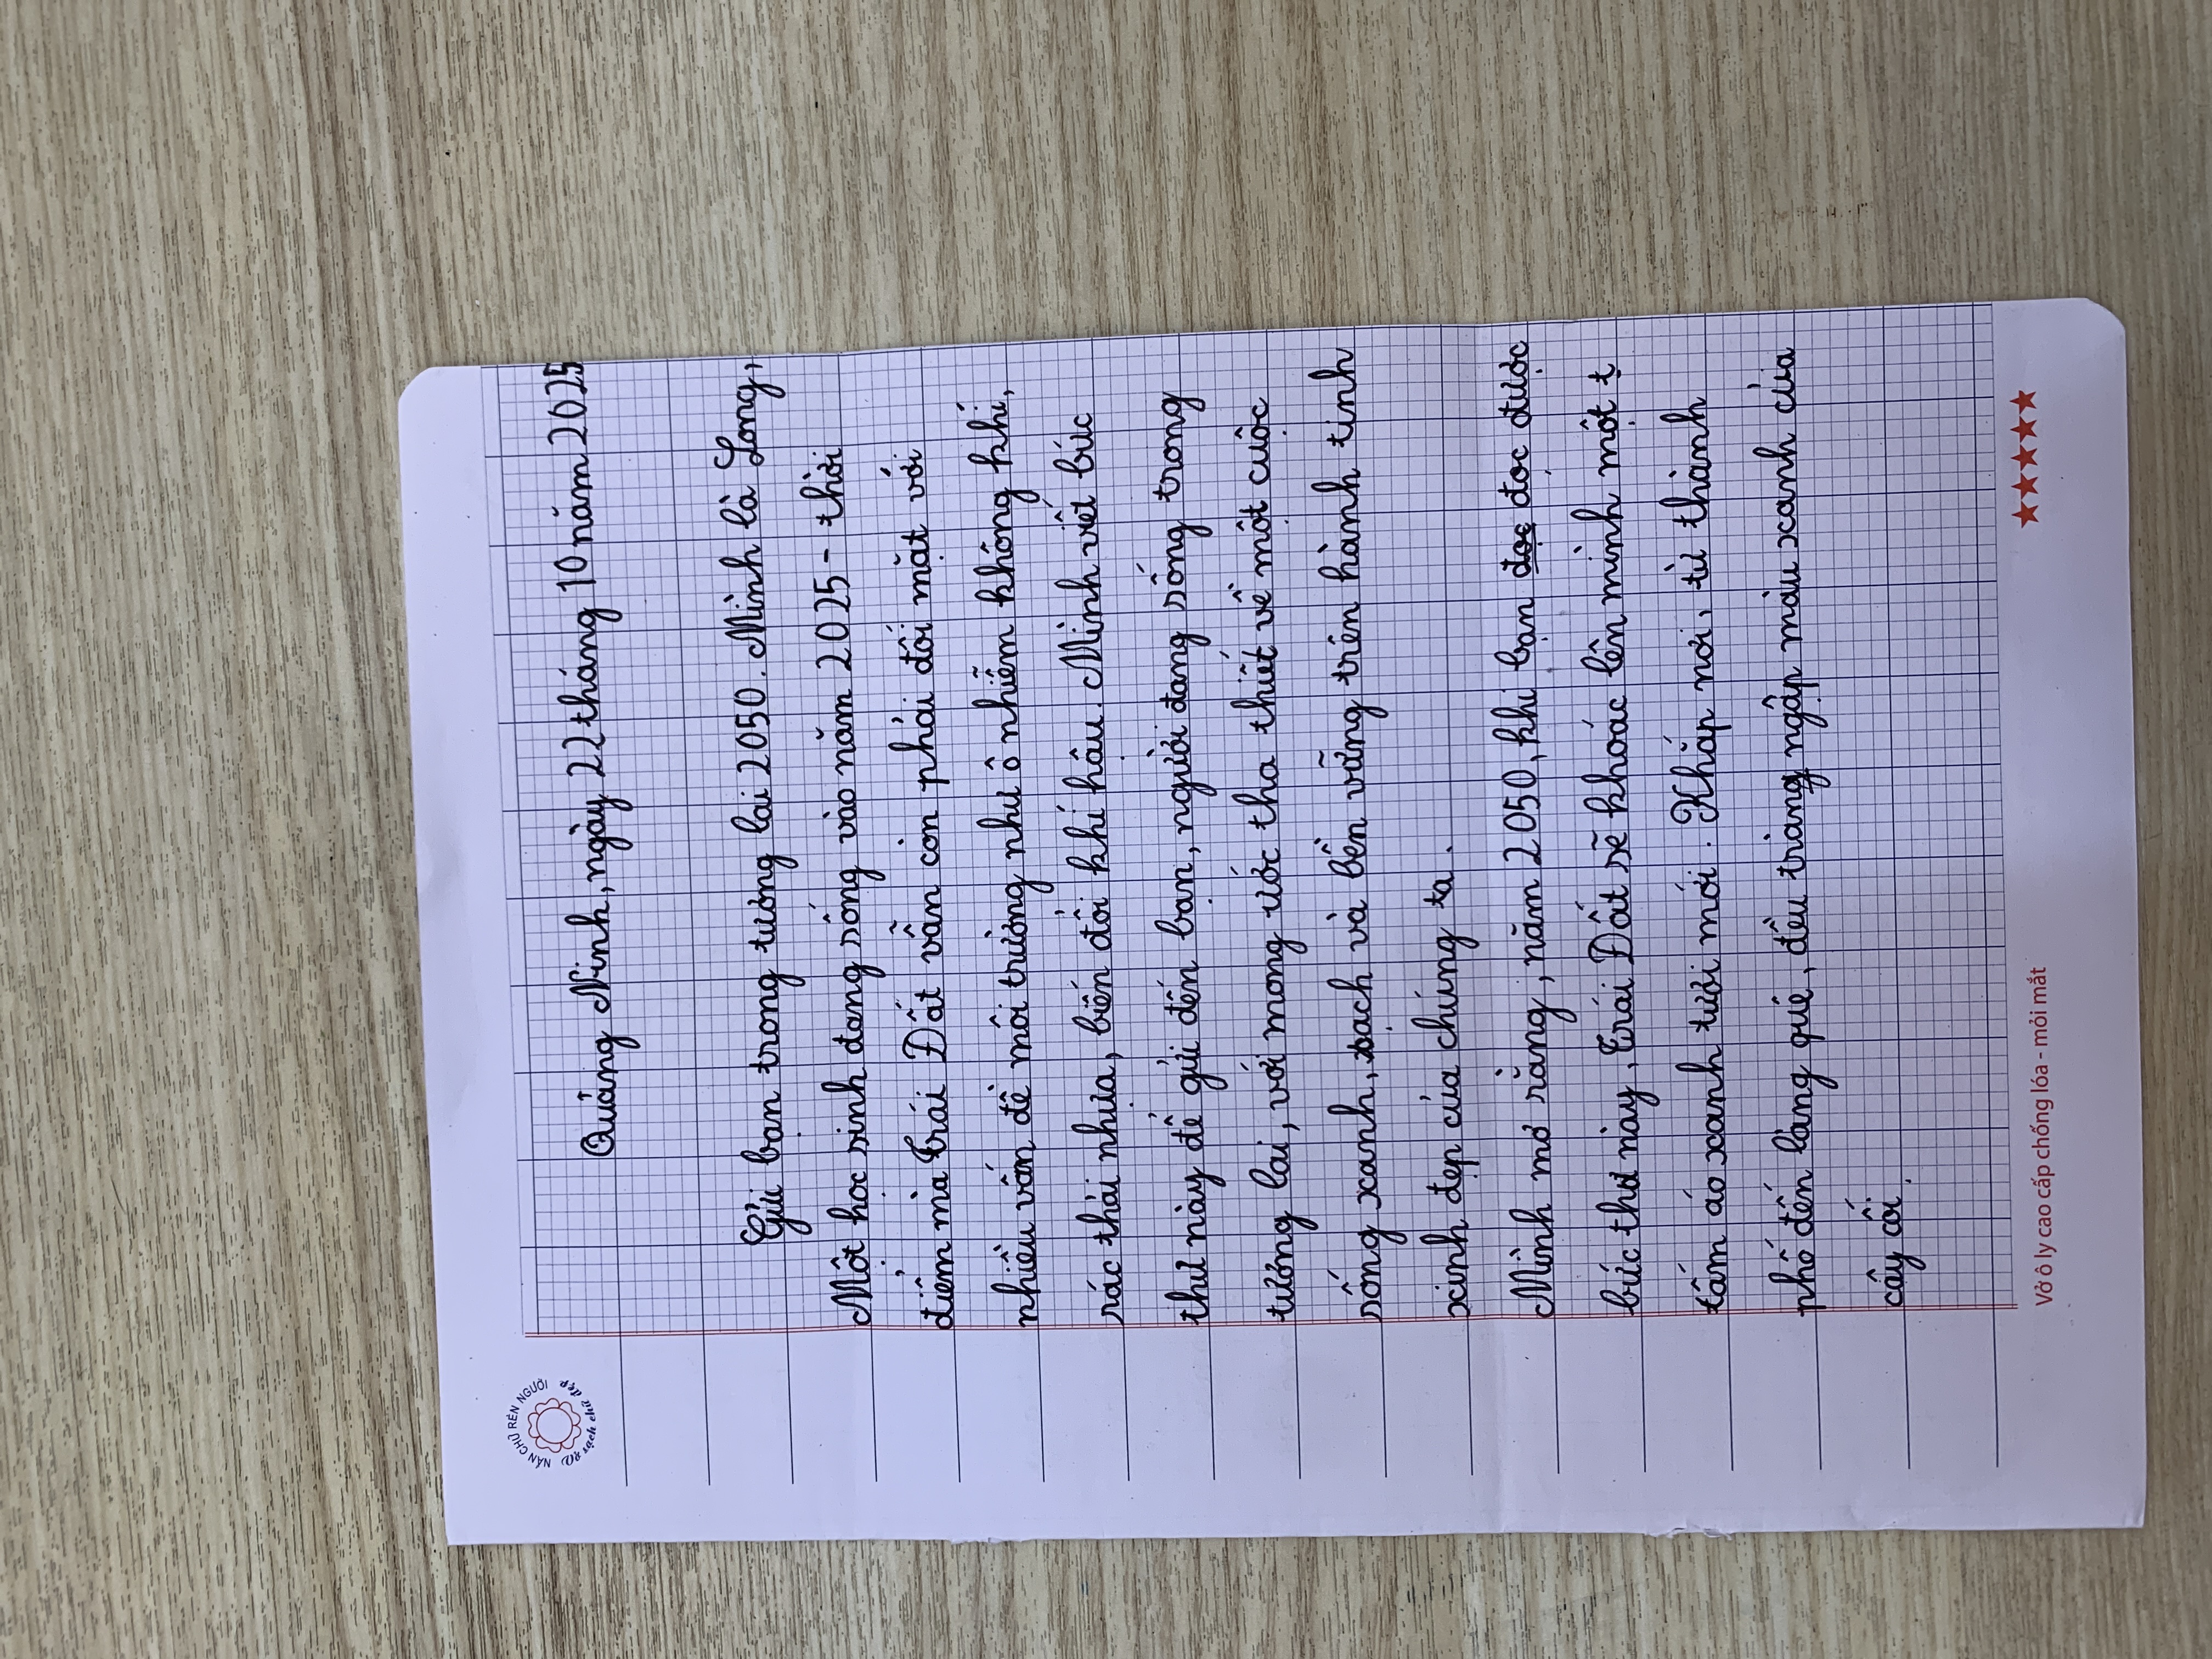 NẮN CHỮ RÈN NGƯỜI
Vở sạch chữ đẹp
Quảng Ninh, ngày 22 tháng 10 năm 2025
Gửi bạn trong tương lai 2050. Mình là Long,
Một học sinh đang sống vào năm 2025 - thời
điểm mà Trái Đất vẫn còn phải đối mặt với
nhiều vấn đề môi trường như ô nhiễm không khí,
rác thải nhựa, biến đổi khí hậu. Mình viết bức
thư này để gửi đến bạn, người đang sống trong
tương lai, với mong ước tha thiết về một cuộc
sống xanh, sạch và bền vững trên hành tinh
xinh đẹp của chúng ta.
Mình mơ rằng, năm 2050, khi bạn đọc đọc được
bức thư này, Trái Đất sẽ khoác lên mình một t
tấm áo xanh tươi mới. Khắp nơi, từ thành
phố đến làng quê, đều tràng ngập màu xanh của
cây cối.
Vở ô ly cao cấp chống lóa - mỏi mắt